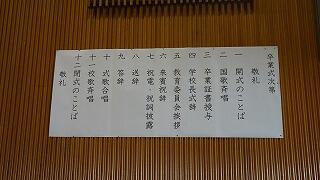 卒業式次第
敬礼
一 開式のことば
二 国歌斉唱
三 卒業証書授与
四 学校長式辞
五 教育委員会挨拶
六 来賓祝辞
七 祝電・祝詞披露
八 送辞
九 答辞
十 式歌合唱
十一 校歌斉唱
十二 閉式のことば
敬礼